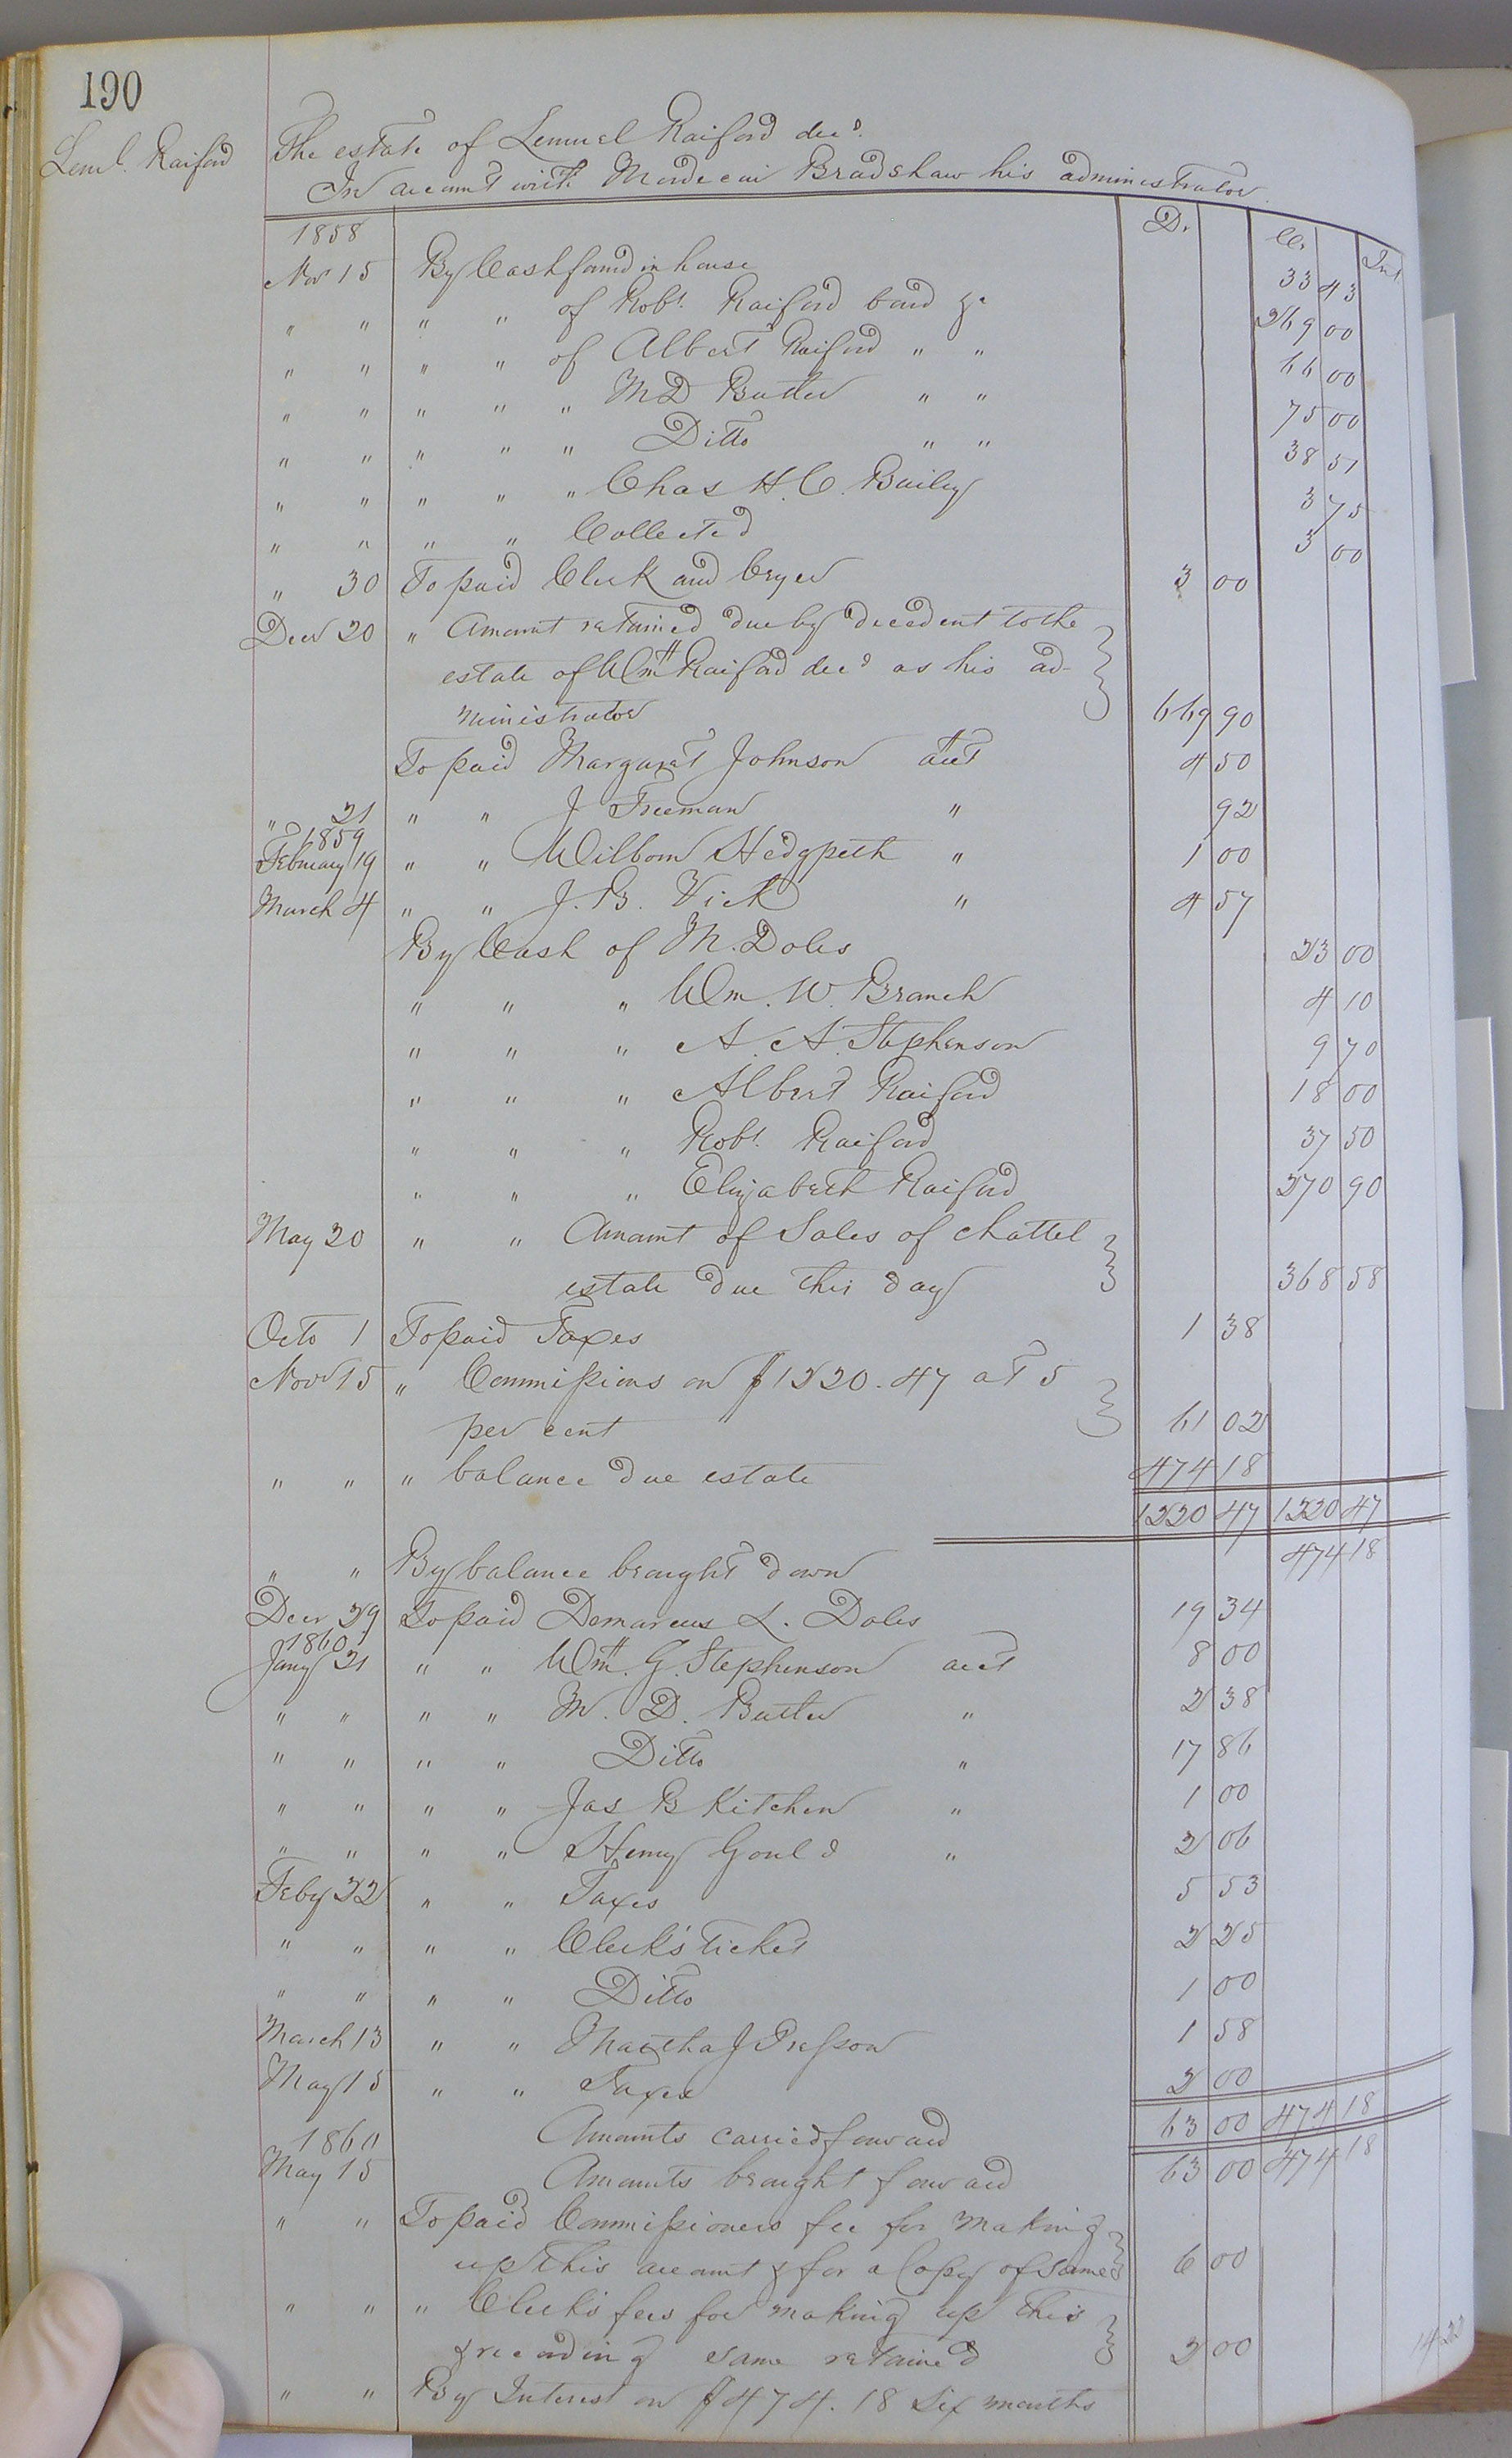 190
Leml. Raiford
The estate of Lemuel Raiford decd.
In account with Mordecai Bradshaw his administrator.
1858 D. Cr. Int
Nov 15 By Cash found in house 33 43
" " " " of Robt. Raiford bond &c 269 00
" " " " of Albert Raiford " " 66 00
" " " " " M D Butler " " 75 00
" " " " " Ditto " " 38 51
" " " " " Chas H. C. Bailey 3 75
" " " " Collected 3 00
" 30 To paid Clerk and Cryer 3 00
Decr 20 " Amount retained due by decedent to the
estate of Wm Raiford decd as his ad-
ministrator 669 90
To paid Margaret Johnson acct 4 50
" 21 " " J Freeman " 92
1859
February 19 " " Wilborn Hedgpeth " 1 00
March 4 " " J. B. Vick " 4 57
By Cash of M. Doles 23 00
" " " Wm. W. Branch 4 10
" " " A. A. Stephenson 9 70
" " " Albert Raiford 18 00
" " " Robt. Raiford 37 50
" " " Elizabeth Raiford 270 90
May 20 " " Amount of Sales of chattel
estate due this day 368 58
Octo 1 To paid Taxes 1 38
Novr 15 " Commissions on $1220.47 at 5
per cent 61 02
" " " balance due estate 474 18
1220 47 1220 47
" " By balance brought down 474 18
Decr 29 To paid Demarcus L. Doles 19 34
1860
Jany 21 " " Wm. G. Stephenson acct 8 00
" " " " M. D. Butler " 2 38
" " " " Ditto " 17 86
" " " " Jas B Kitchen " 1 00
" " " " Henry Gould " 2 06
Feby 22 " " Taxes 5 53
" " " " Clerk's ticket 2 25
" " " " Ditto 1 00
March 13 " " Martha J Presson 1 58
May 15 " " Taxes 2 00
Amounts carried forward 63 00 474 18
1860
May 15 Amounts brought forward 63 00 474 18
" " To paid Commissioners fee for making
up this account & for a Copy of same 6 00
" " " Clerk's fees for making up this
& recording same retained 2 00
" " By Interest on $474.18 Six months 14 22